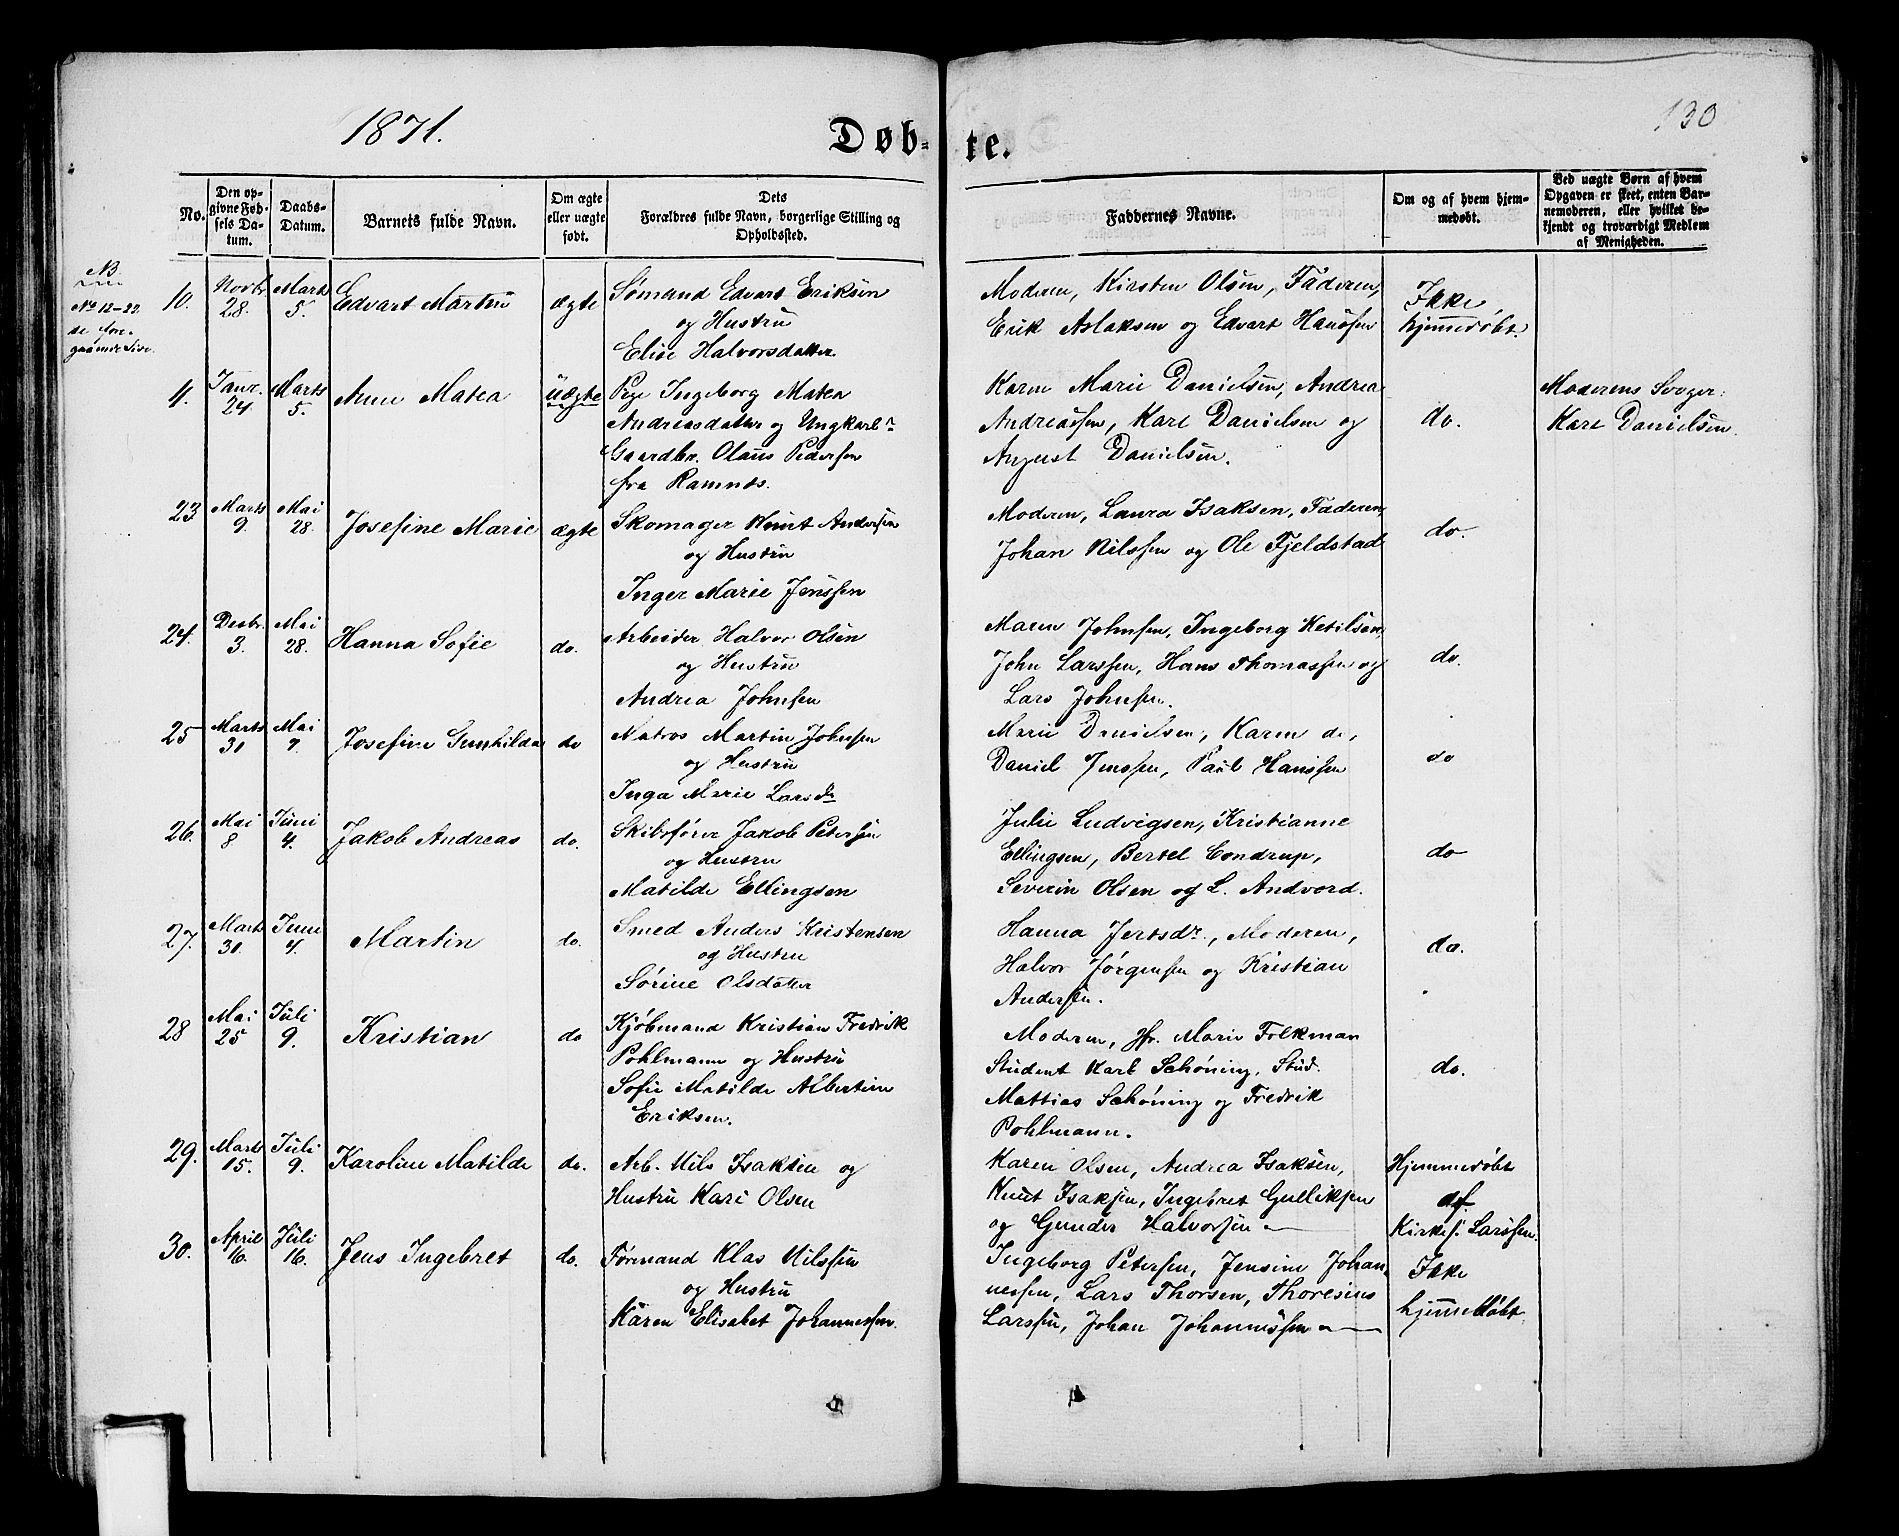 1871.
Døb-
te.
130
No.
Den op-
givne Fød-
sels Da-
tum.
Daabs-
Datum.
Barnets fulde Navn.
Om ægte
eller uægte
født.
Dets
Forældres fulde Navn, borgerlige Stilling og
Opholdssted.
Faddernes Navne.
Om og af hvem hjem-
medøbt.
Ved uægte Børn af hvem
Opgaven er skeet, enten Bar-
nemoderen, eller hvilket be-
kjendt og troværdigt Medlem
af Menigheden.
NB
No 12-22
se fore-
gaaende Side.
10. Novbr 28. Marts 5. Edvart Martin ægte
Sømand Edvart Eriksen
og Hustru
Elise Halvorsdatter.
Moderen, Kirsten Olsen, Faderen,
Erik Aslaksen og Edvart Hansen
Ikke
hjemmedøbt.
11. Janr. 24. Marts 5. Anne Matea uægte
Pige Ingeborg Matea
Andreasdatter og Ungkarl
Gaardbr. Olaus Pedersen
fra Ramnes.
Karen Marie Danielsen, Andrea
Andreassen, Karl Danielsen og
August Danielsen.
do.
Moderens Svoger:
Karl Danielsen.
23 Marts 9. Mai 28. Josefine Marie ægte
Skomager Knut Andersen
og Hustru
Inger Marie Jenssen
Moderen, Laura Isaksen, Faderen,
Johan Nilssen og Ole Fjeldstad
do.
24. Decbr. 3. Mai 28. Hanna Sofie do.
Arbeider Halvor Olsen
og Hustru
Andrea Johnsen
Maren Johnsen, Ingeborg Ketilsen,
John Larssen, Hans Thomassen og
Lars Johnsen.
do.
25 Marts 30 Mai 7. Josefine Gunhilda do
Matros Martin Johnsen
og Hustru
Inga Marie Larsdr
Marie Danielsen, Karen do,
Daniel Jenssen, Paul Hanssen
do
26. Mai 8 Juni 4. Jakob Andreas do.
Skibsfører Jakob Petersen
og Hustru
Matilde Ellingsen
Julie Ludvigsen, Kristianne
Ellingsen, Bertel Condrup,
Severin Olsen og L. Andvord.
do
27. Marts 30. Juni 4. Martin do.
Smed Anders Kristensen
og Hustru
Sørine Olsdatter
Hanna Jertsdr., Moderen,
Halvor Jørgensen og Kristian
Andersen.
do.
28 Mai 25 Juli 9. Kristian do
Kjøbmand Kristian Fredrik
Pohlmann og Hustru
Sofie Matilde Albertine
Eriksen.
Moderen, Jfr. Marie Folkman
Student Karl Schöning, Stud.
Mattias Schöning og Fredrik
Pohlmann.
do.
29. Marts 15. Juli 9. Karoline Matilde do.
Arb. Nils Isaksen og
Hustru Kari Olsen
Karen Olsen, Andrea Isaksen,
Knut Isaksen, Ingebret Gulliksen
og Gunder Halvorsen
Hjemmedøbt
af
Kirkes. Larssen.
30. April 16. Juli 16. Jens Ingebret do.
Formand Klas Nilssen
og Hustru
Karen Elisabet Johannessen.
Ingeborg Petersen, Jensine Johan-
nessen, Lars Thorsen, Thoresius
Larssen, Johan Johannessen
Ikke
hjemmedøbt.